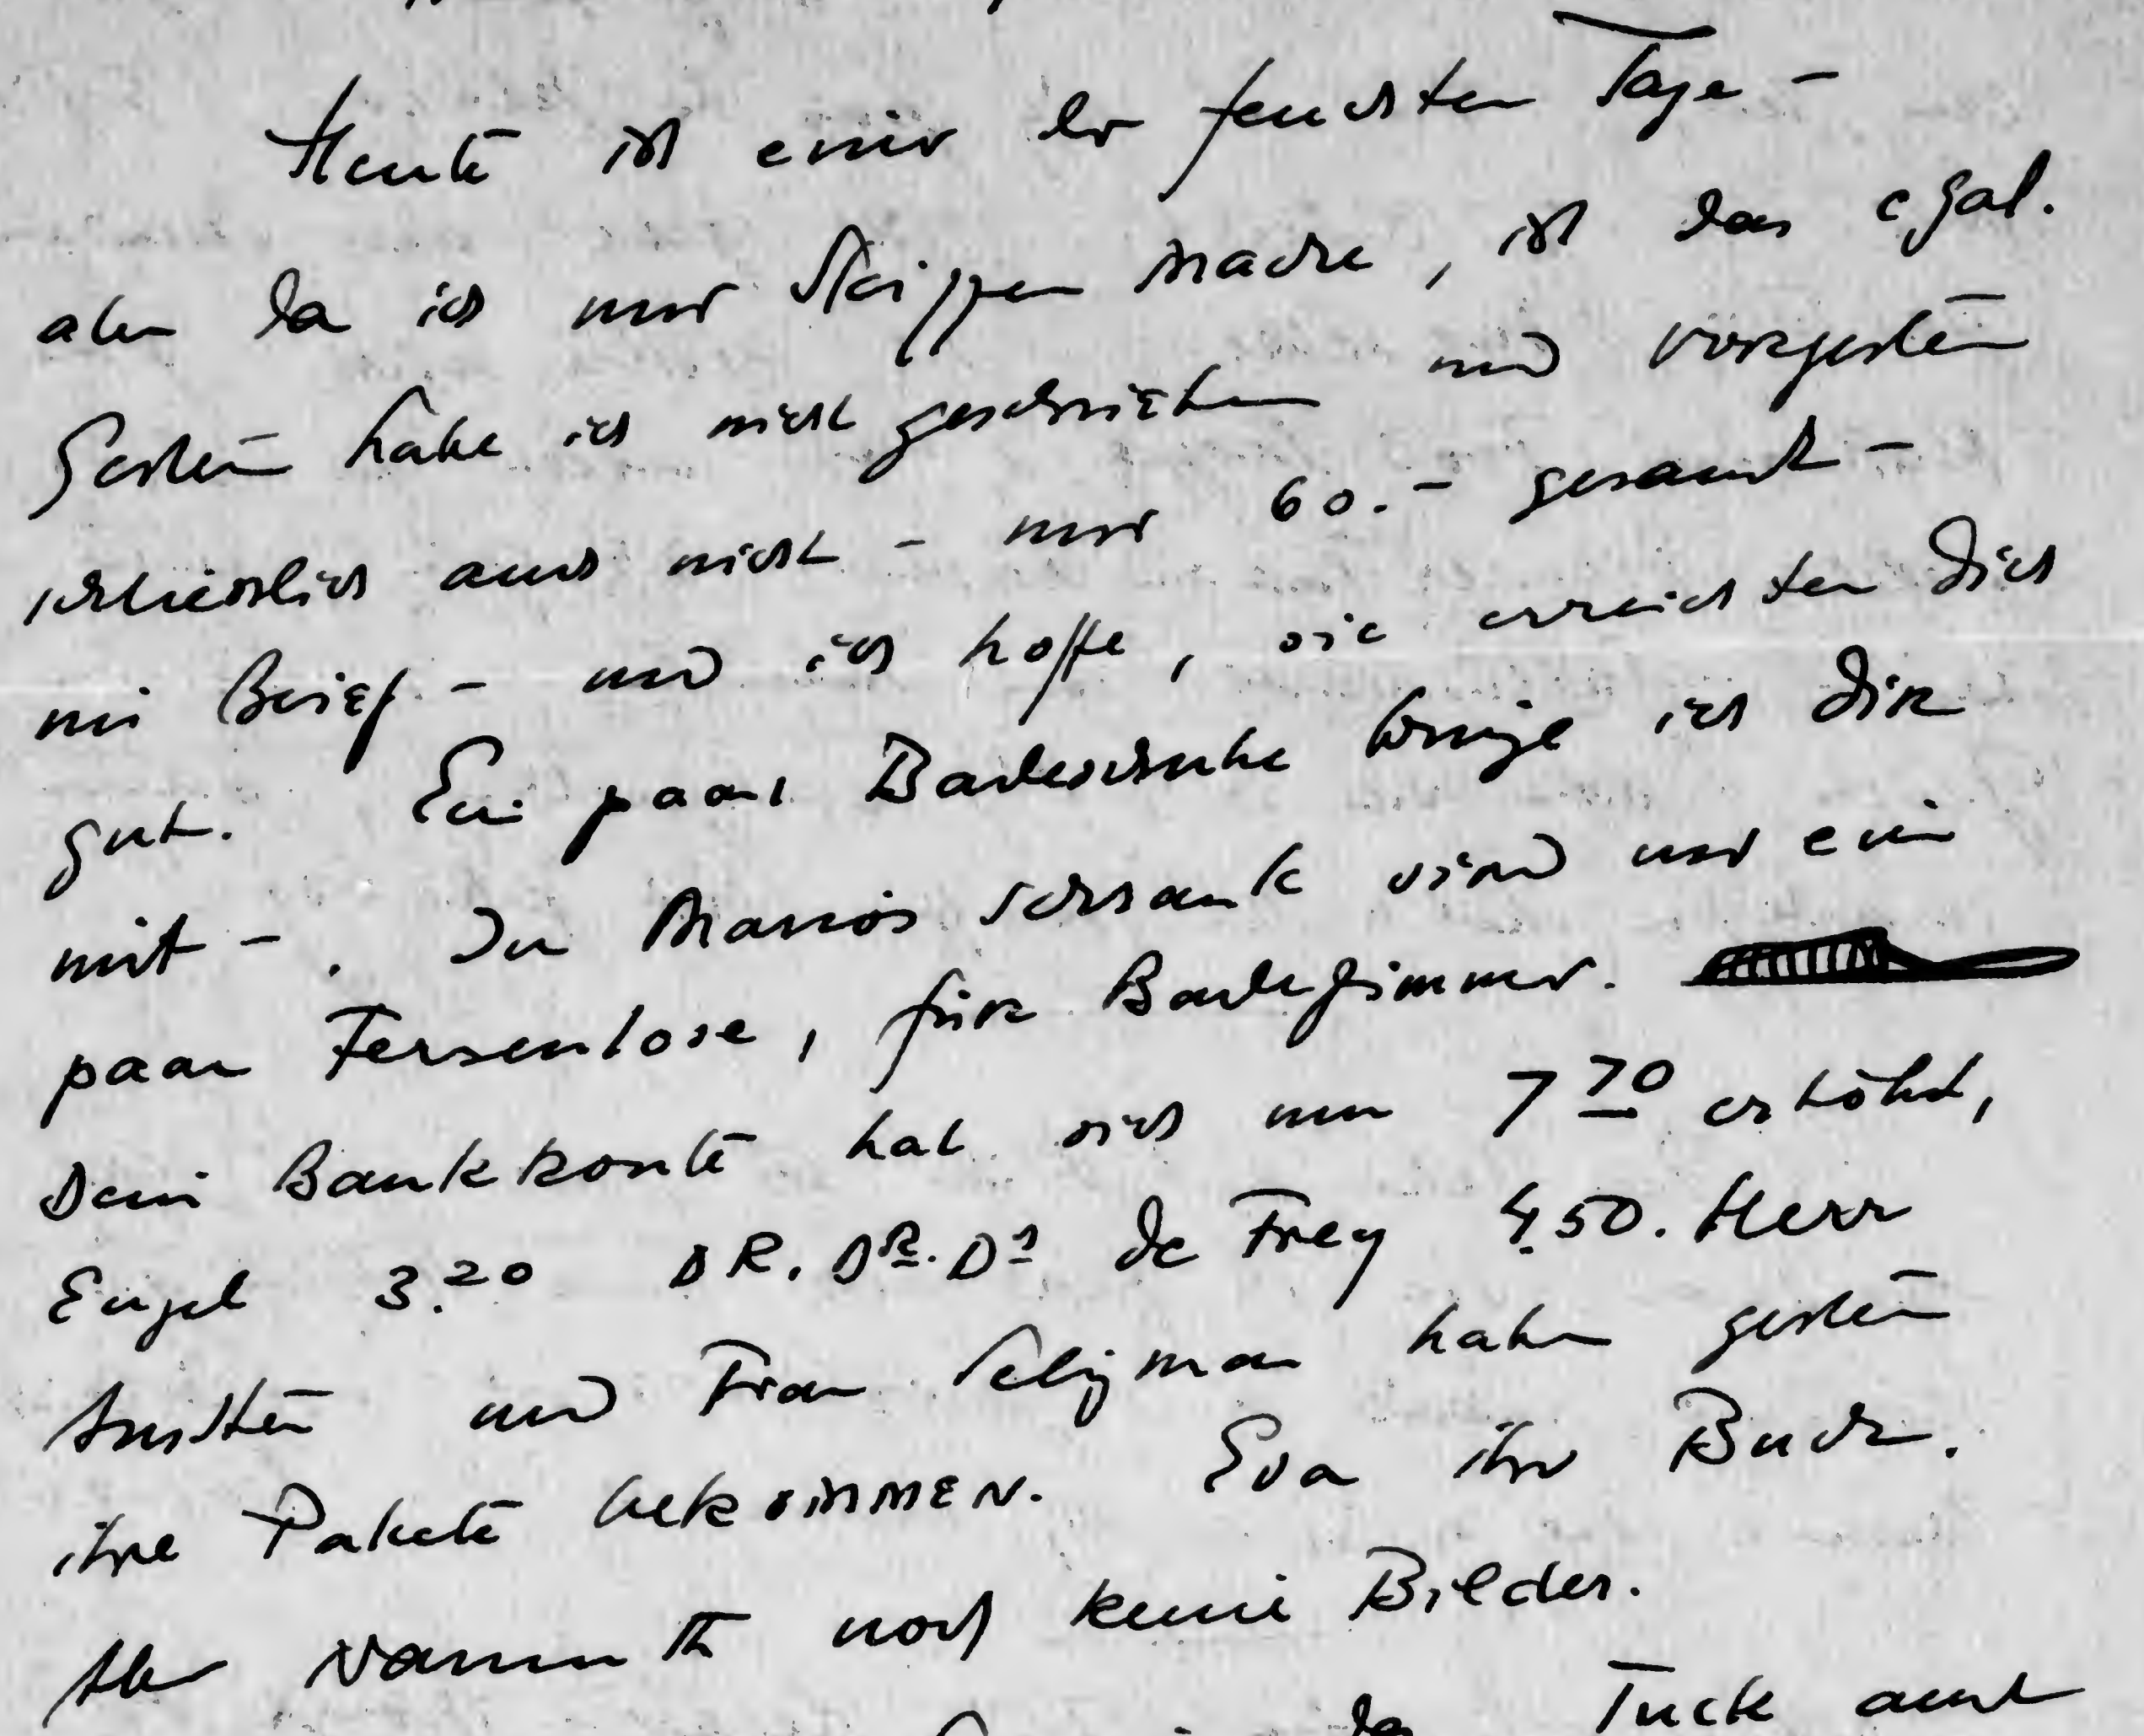 Heute ist einer der feuchten Tage –
aber da ich nur Skizzen mache, ist das egal.
Gestern habe ich nicht geschrieben und vorgestern
schliesslich auch nicht – nur 60.– gesandt –
im Brief – und ich hoffe, sie erreichten Dich
gut. Ein paar Badeschuhe bringe ich Dir
mit –. In Marios Schrank sind nur ein
paar Fersenlose, für Badezimmer.
Dein Bankkonto hat sich um 7 70 erhöht,
Engel 3.20 DR. DR. D? de Frey 4.50. Herr
und Frau Seligman haben gestern
ihre Pakete bekommen. Eva ihr Buch.
Aber noch keine Bilder.
Tuck